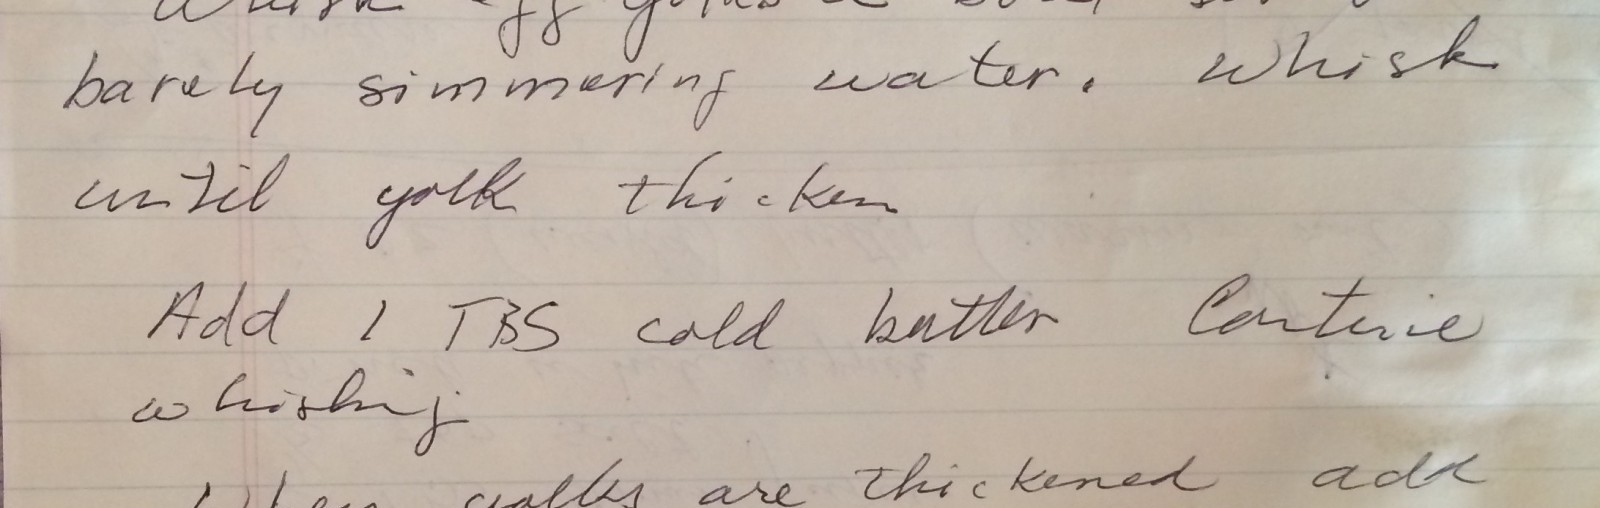 Whisk egg yolks
barely simmering water. Whisk
until yolk thicken
Add 1 TBS cold butter Continue
whisking
When yolks are thickened add